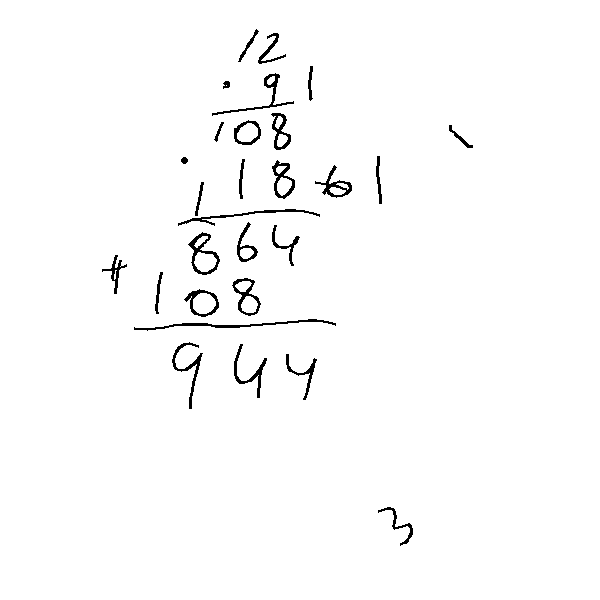 12
· 9 1
108
· 1 1 8 6 1
864
+ 108
944
3